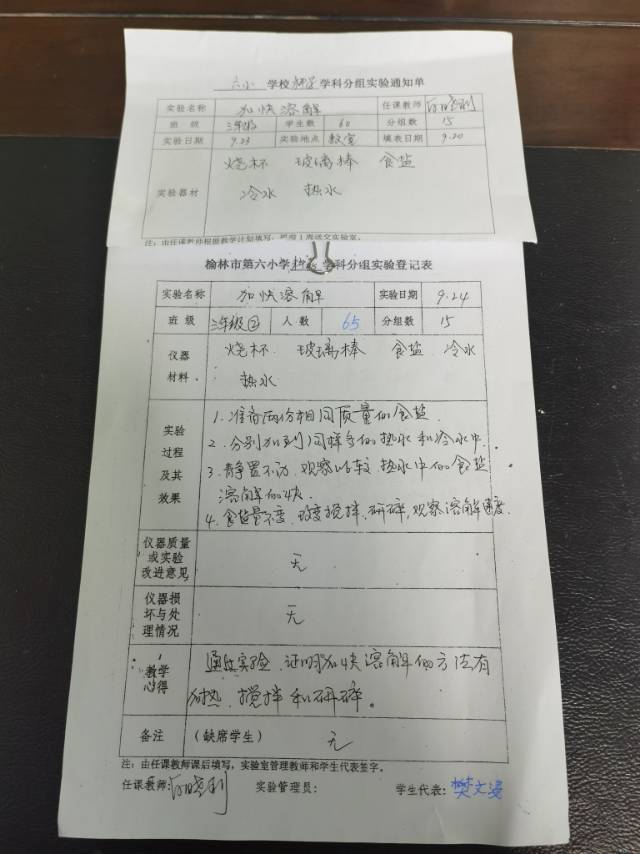 六小 学校科学学科分组实验通知单
实验名称 加快溶解 任课教师
班 级 三年级 学生数 60 分组数 15
实验日期 9.23 实验地点 教室 填表日期 9.20
实验器材 烧杯 玻璃棒 食盐
冷水 热水
注：由任课教师根据教学计划填写，提前1周送交实验室。
榆林市第六小学科学学科分组实验登记表
实验名称 加快溶解 实验日期 9.24
班 级 三年级② 人 数 65 分组数 15
仪器 烧杯 玻璃棒 食盐 冷水
材料 热水
实验 1. 准备两份相同质量的食盐.
过程 2. 分别加到同样多的热水和冷水中.
及其 3. 静置不动.观察比较.热水中的食盐
效果 溶解的快.
4. 食盐量不变.改变搅拌、研碎,观察溶解速度.
仪器质量
或实验 无
改进意见
仪器损
坏与处 无
理情况
教学 通过实验.证明加快溶解的方法有
心得 加热、搅拌和研碎。
备注 （缺席学生） 无
注：由任课教师课后填写，实验室管理教师和学生代表签字。
任课教师: 实验管理员: 学生代表: 樊文